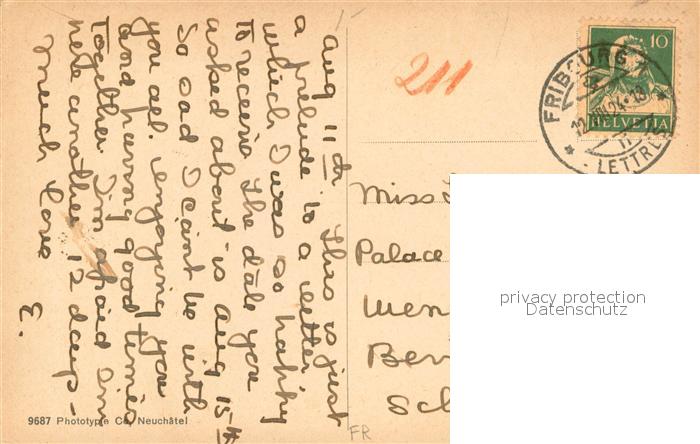 Aug 11th This is just
a prelude to a letter
which I was so happy
to receive. The date you
asked about is Aug 15th
So sad I can't be with
you all. enjoying you
and having good times
together. I'm afraid I'm
here another 12 days-
much love
E.
211
10
HELVETIA
FRIBOURG 1
12. VIII 24-18
LETTRE
Miss
Palace
Wen
Ber
Sc
privacy protection
Datenschutz
9687 Phototypie Co, Neuchâtel
FR
1-